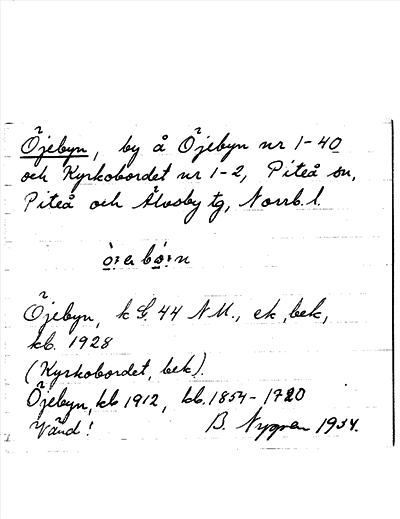 Öjebyn, by å Öjebyn nr 1-40
och Kyrkobordet nr 1-2, Piteå sn,
Piteå och Älvsby tg, Norrb. l.
Öjebyn, k G. 44 NU., ek, bek,
kb. 1928
(Kyrkobordet, bek).
Öjebyn, kb 1912, kb. 1854-1720
Vänd! B. Nygren 1934.